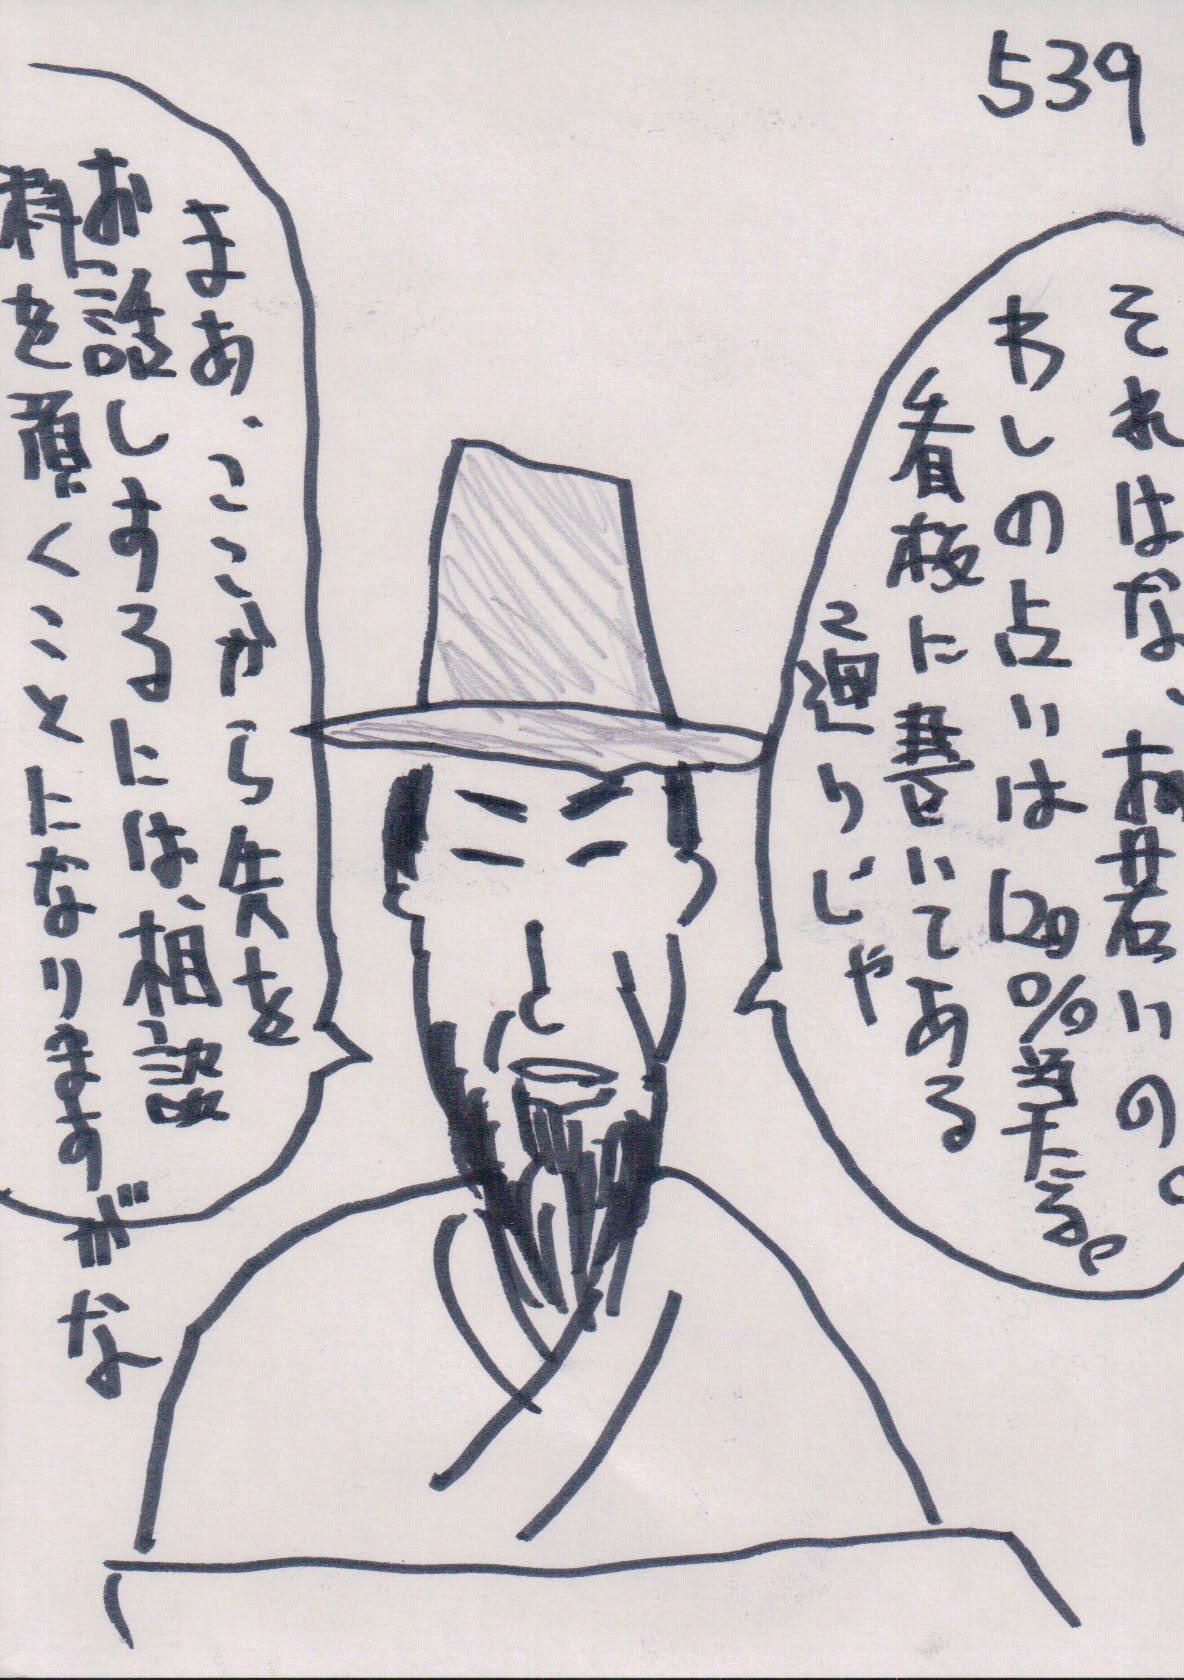 539
それはな、お若いの。
わしの占いは120%当たる。
看板に書いてある
通りじゃ
まあ、ここから先を
お話しするには、相談
料を頂くことになりますがな